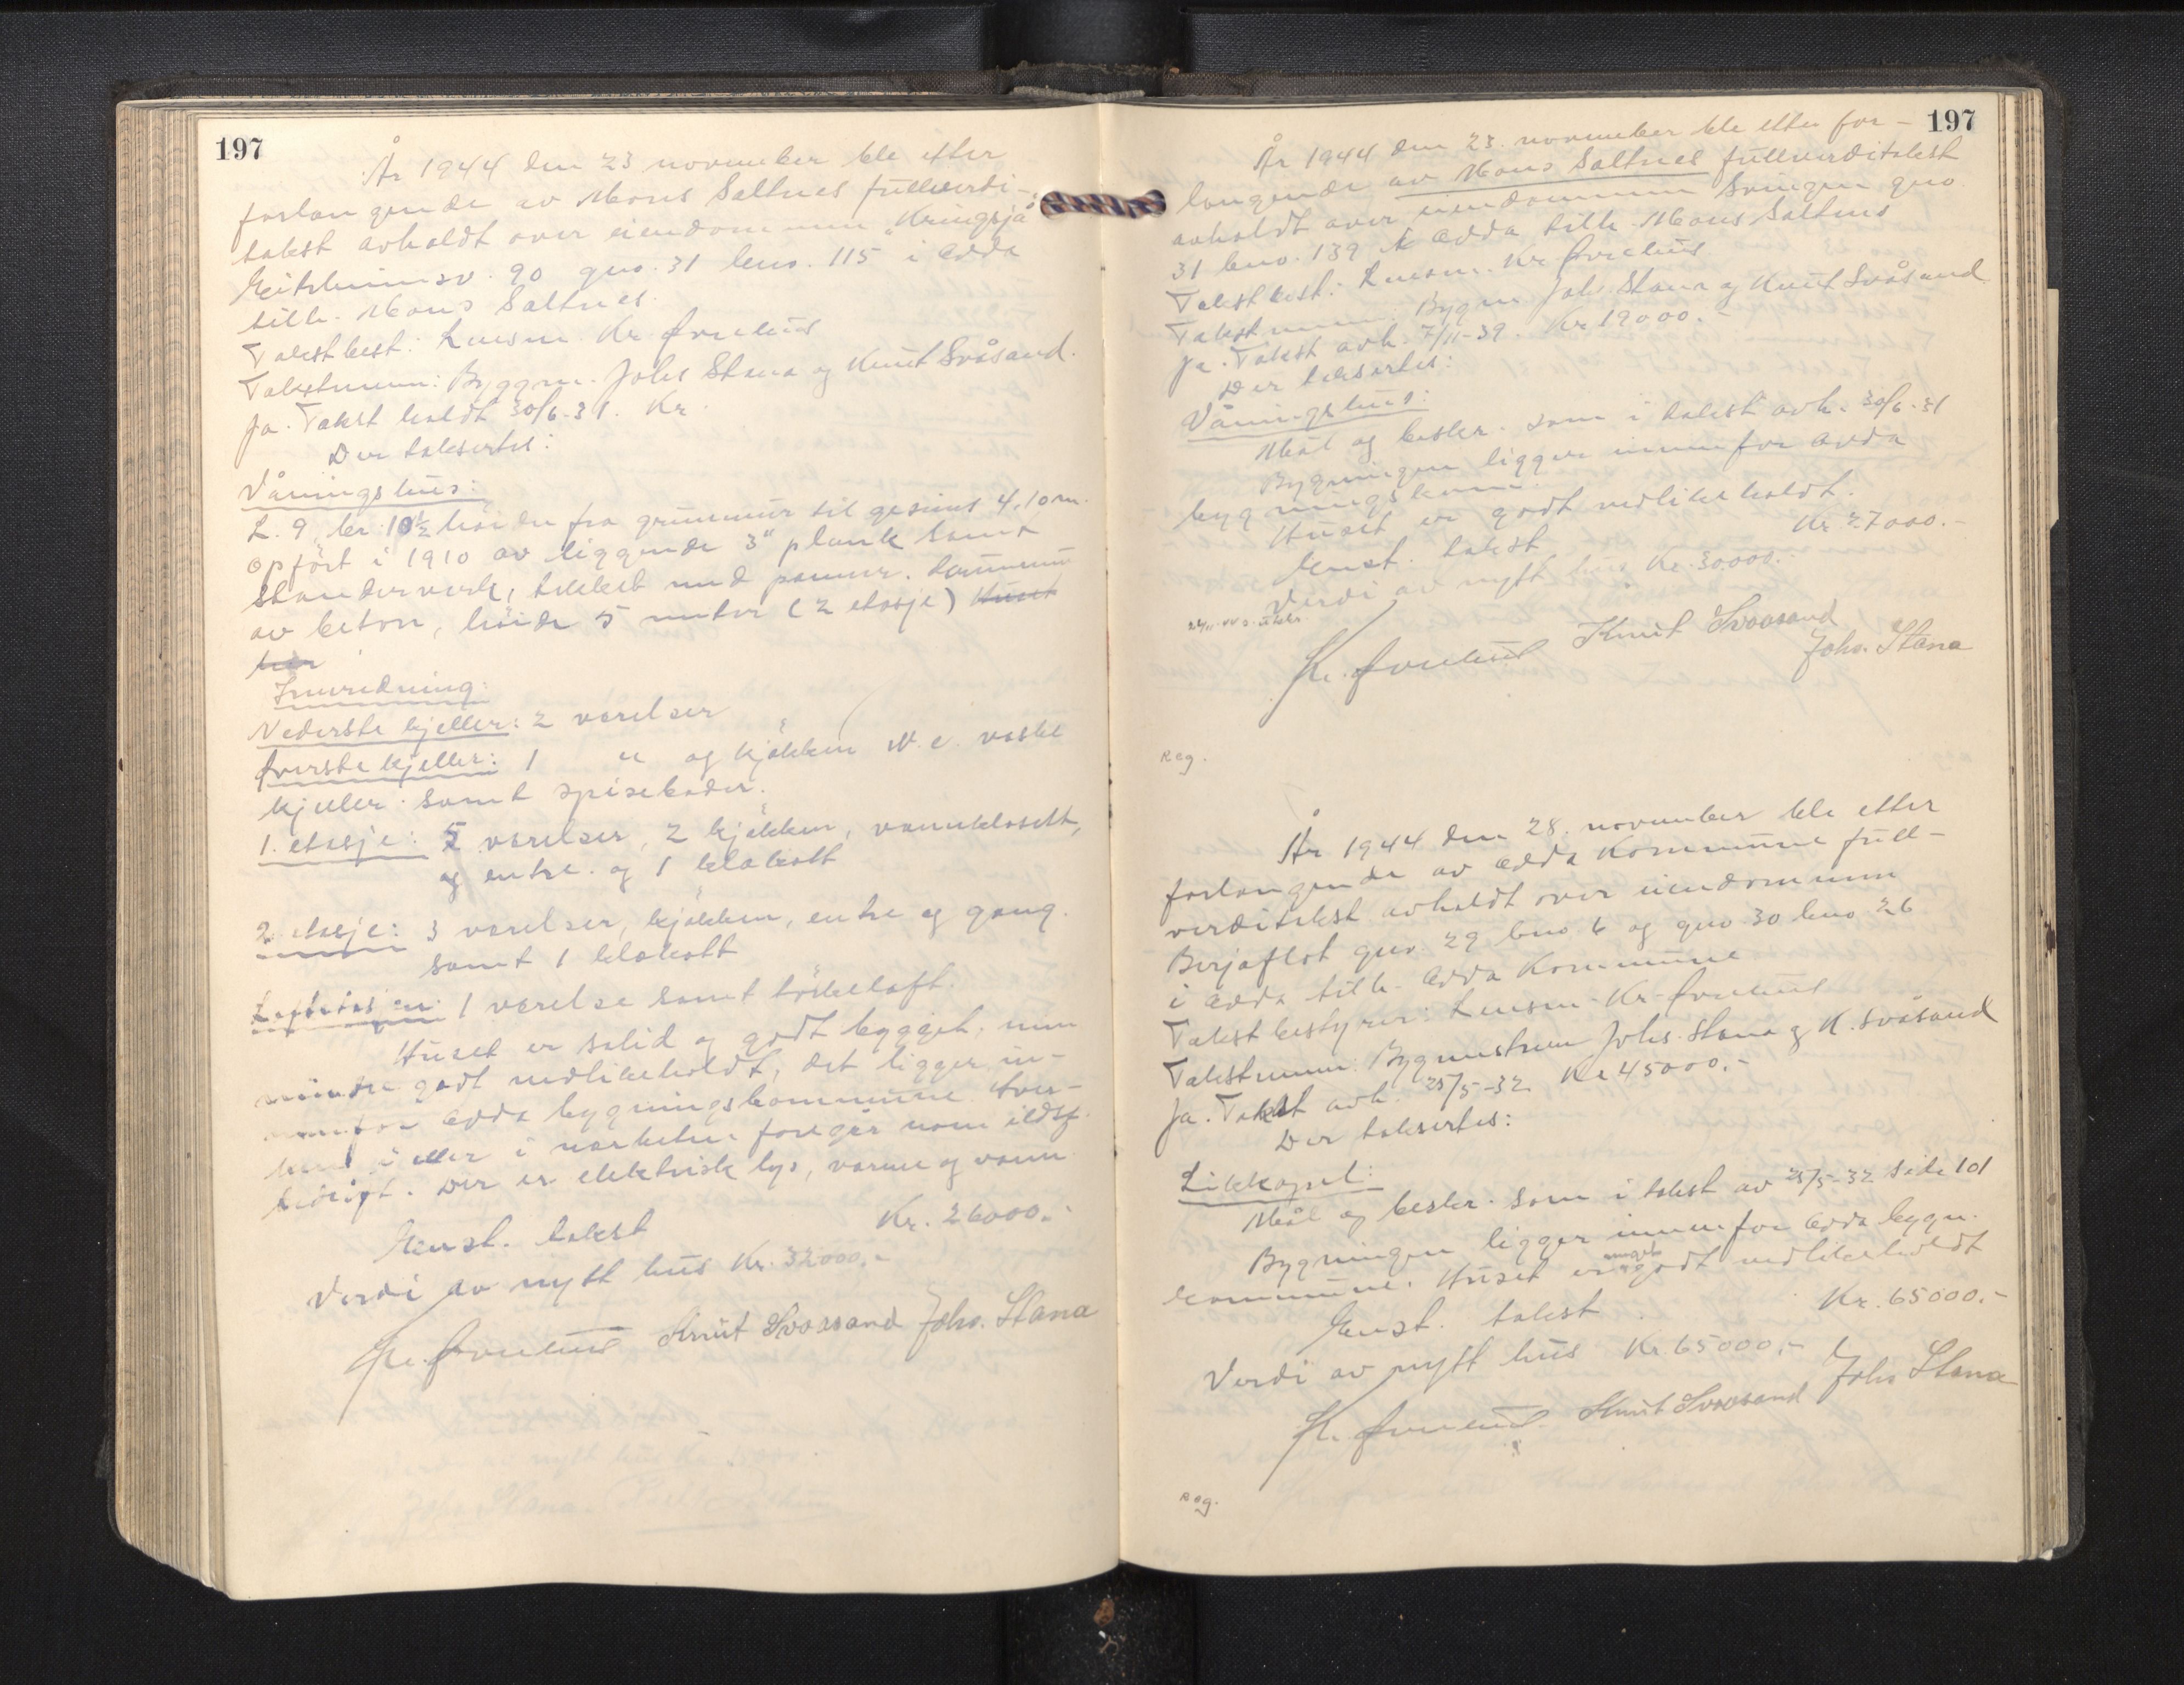 197
År 1944 den 23 november ble efter
forlangende av Mons Saltnes fullverdi-
takst avholdt over eiendommen "Kringsjå"
Eitrheimsv. 90 gno. 31 bno. 115 i Odda
tilh. Mons Saltnes.
Takstbest: Lensm. Kr. Øvrehus
Takstmenn: Byggm. Johs Stana og Knut Svåsand.
Ja. Takst holdt 30/6-31. Kr.
Der taksertes:
Våningshus:
L. 9, br. 10½ höiden fra grunnmur til gesims 4,10 m.
opfört i 1910 av liggende 3" plank samt
standerverk, tekket med panner. Grunnmur
av beton, höide 5 meter (2 etasje) Huset
har
Innredning:
Nederste kjeller: 2 værelser
Øverste kjeller: 1 " og kjökken W.c. vaske
kjeller samt spiseboder.
1. etasje: 5 værelser, 2 kjökken, vannklosett,
og entre. og 1 klokott
2 etasje: 3 værelser, kjökken, entre og gang.
samt 1 klokott
Loftetasjen: 1 værelse samt törkeloft.
Huset er solid og godt bygget, men
mindre godt vedlikeholdt, det ligger in-
nenfor Odda bygningskommune. Hver-
ken i eller i nærheten foregår noen ildsf.
bedrift. Der er elektrisk lys, varme og vann
Enst. takst Kr. 26000.-
Verdi av nytt hus Kr. 32000.-
Kr. Øvrehus Knut Svaasand Johs. Stana
197
År 1944 den 23. november ble etter for-
langende av Mons Saltnes fullverditakst
avholdt over eiendommen Svingen gno.
31 bno. 139 i Odda tilh. Mons Saltnes
Takstbest: Lensm. Kr. Øvrehus.
Takstmenn: Bygm Johs Stana og Knut Svåsand
Ja. Takst avh. 7/11-39. Kr. 19000.-
Der taksertes:
Våningshus:
Mål og beskr. som i takst avh. 30/6-31
Bygningen ligger innenfor Odda
bygningskom.
Huset er godt vedlikeholdt.
Enst. takst Kr 27000.-
Verdi av nytt hus Kr. 30000.-
Kr. Øvrehus Knut Svaasand
Johs. Stana
Reg.
År 1944 den 28. november ble etter
forlangende av Odda Kommune full-
verditakst avholdt over eiendommen
Berjaflot gno. 29 bno 6 og gno 30 bno 26
i Odda tilh. Odda Kommune
Takstbestyrer: Lensm. Kr. Øvrehus
Takstmenn: Bygmestrene Johs. Stana og K. Svåsand
Ja. Takst avh. 25/5-32 Kr 45000.-
Der taksertes:
Likkapel:
Mål og beskr. som i takst av 25/5-32 side 101
Bygningen ligger innenfor Odda bygn.
kommune. Huset er meget godt vedlikeholdt
Enst. takst Kr. 65000.-
Verdi av nytt hus Kr. 65000.-
Kr. Øvrehus Knut Svaasand Johs Stana
Reg.